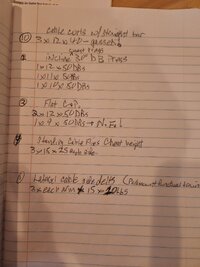 cable curls w/ straight bar
3 x 12 x 40
Incline DB Press
1 x 12 x 50 DBs
1 x 11 x 50DBs
1 x 10 x 50 DBs
③ Flat
2 x 12 x 50 DBs
1 x 9 x 50 DBs →
Standing Cable Flys Chest height
3 x 15 x 25 each side
Lateral cable side delts (
3 x each arm x 15 x 20lbs